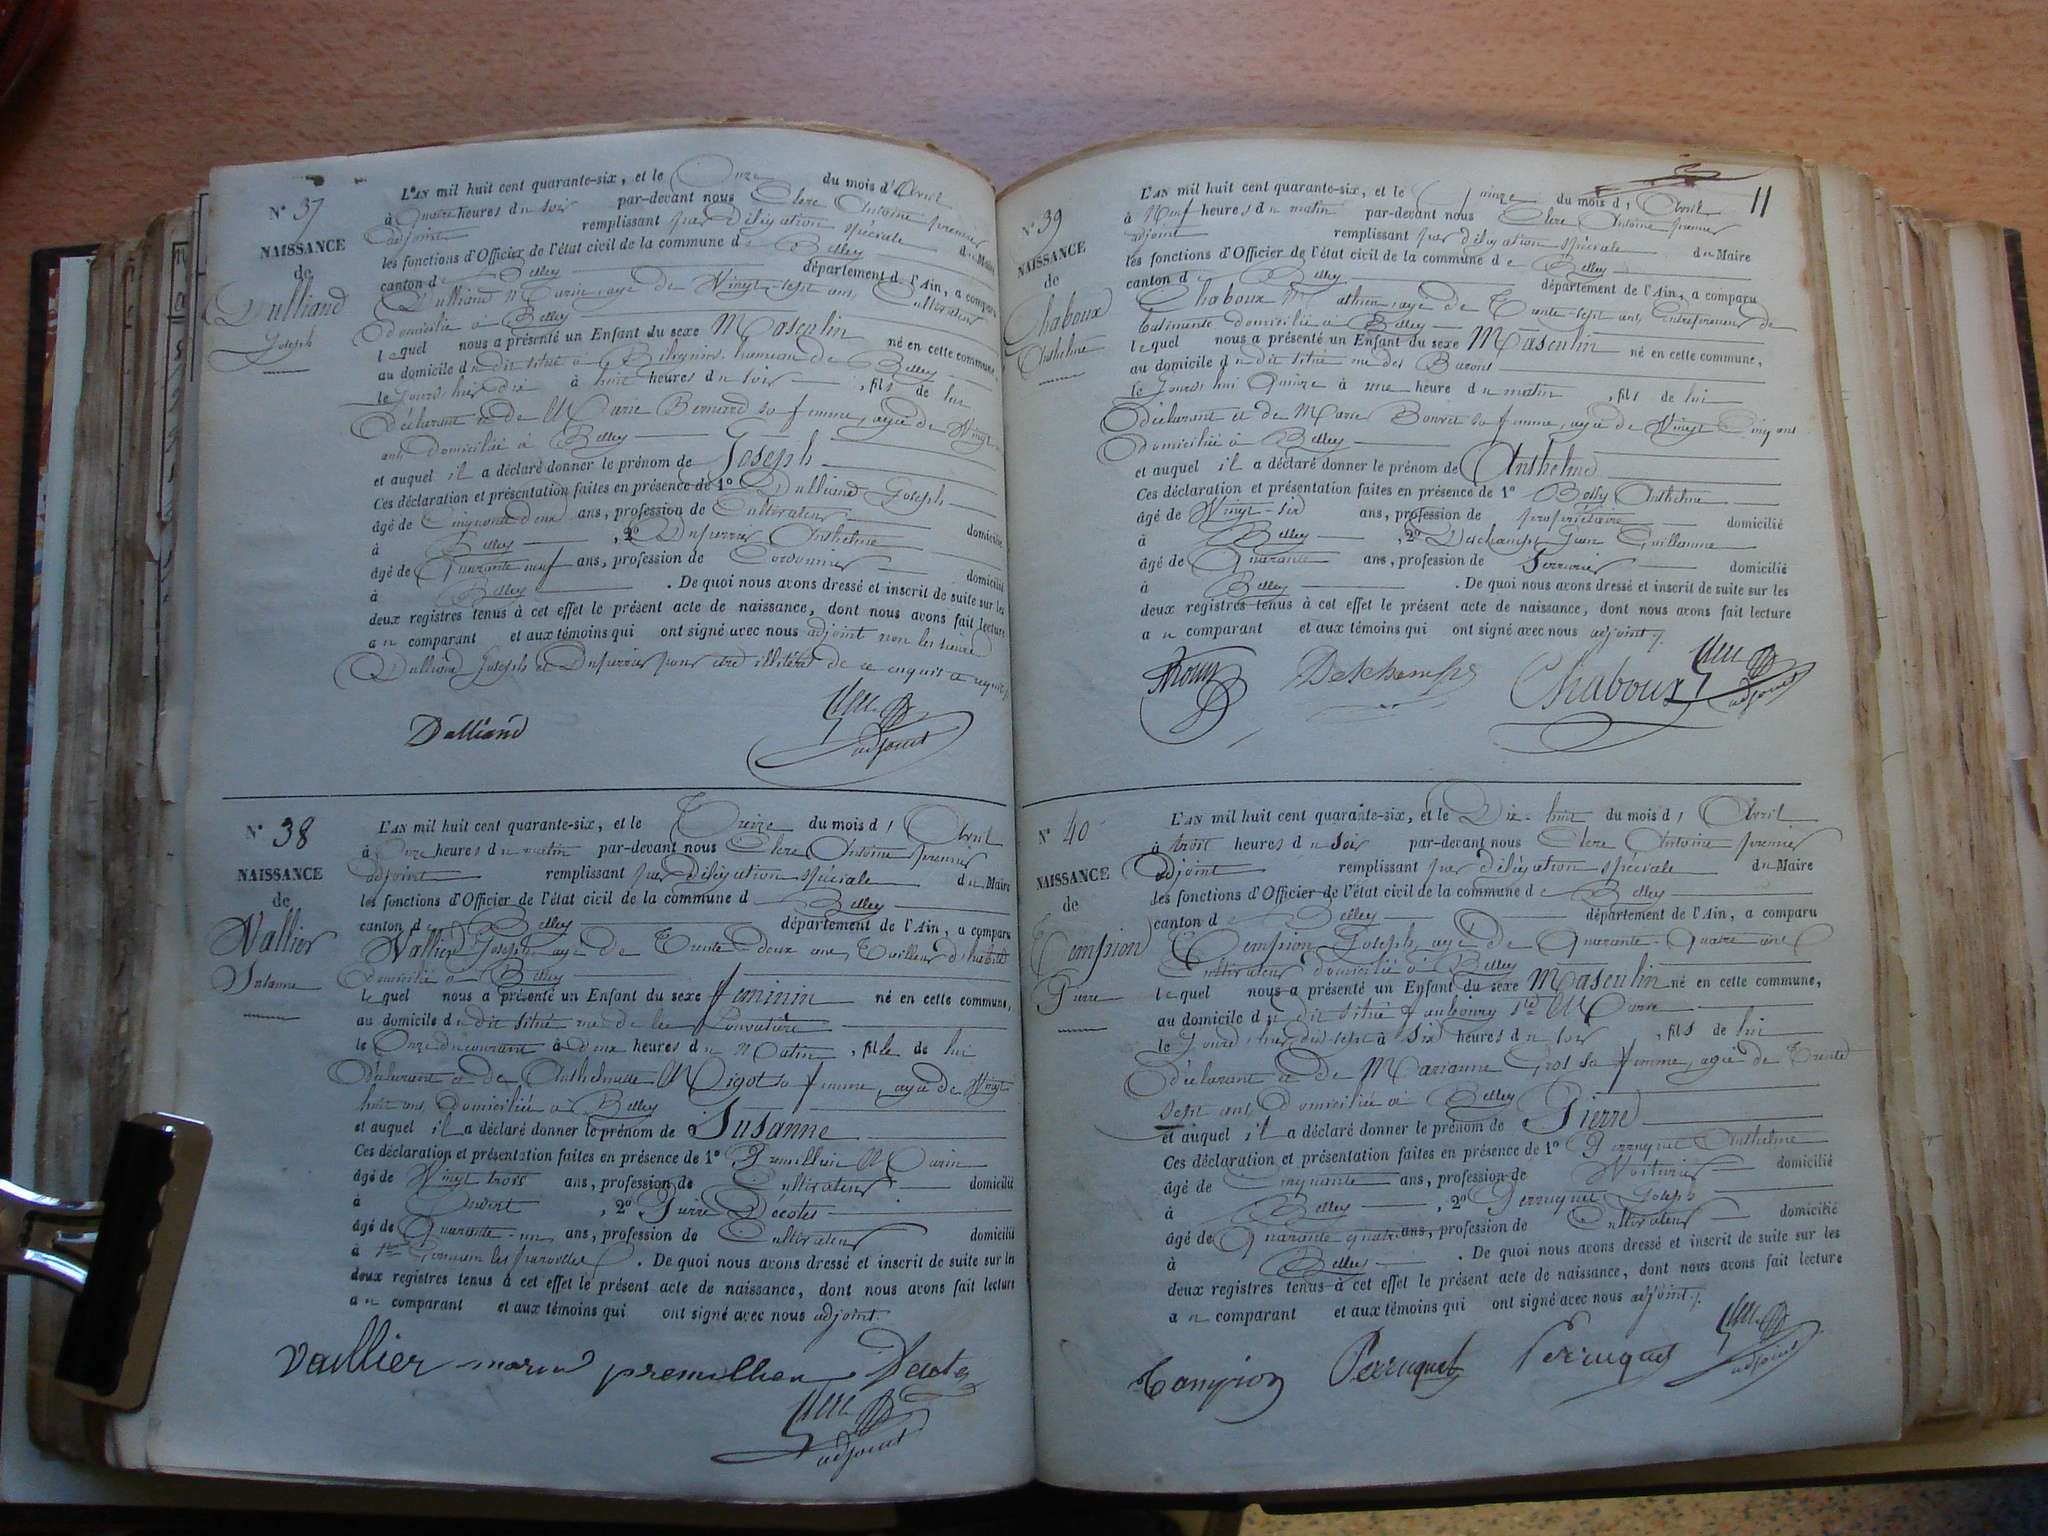 N° 37
NAISSANCE
de
Dulliand
Joseph
L'AN mil huit cent quarante-six, et le Onze du mois d'Avril
à Quatre heures du soir par-devant nous Clerc Antoine premier
adjoint remplissant par délégation spéciale du Maire
les fonctions d'Officier de l'état civil de la commune de Belley
canton de Belley département de l'Ain, a comparu
Dulliand Marin, agé de Vingt-sept ans, Cultivateur
domicilié à Belley
lequel nous a présenté un Enfant du sexe Masculin né en cette commune,
au domicile du dit situé à hameau de Belley
le Jourd'hier dix à huit heures du soir, fils de lui
Déclarant et de Marie Bernard sa femme, agée de Vingt
ans domiciliée à Belley
et auquel il a déclaré donner le prénom de Joseph
Ces déclaration et présentation faites en présence de 1° Dulliand Joseph
âgé de Cinquante deux ans, profession de Cultivateur domicilié
à Belley, 2° Duperrier Anthelme
âgé de Quarante neuf ans, profession de Cordonnier domicilié
à Belley. De quoi nous avons dressé et inscrit de suite sur les
deux registres tenus à cet effet le présent acte de naissance, dont nous avons fait lecture
au comparant et aux témoins qui ont signé avec nous adjoint non les sieurs
Dulliand Joseph et Duperrier pour être illitérés de ce enquis et requis
Dulliand
Clerc
adjoint
N° 38
NAISSANCE
de
Vallier
Susanne
L'AN mil huit cent quarante-six, et le Treize du mois d'Avril
à Onze heures du matin par-devant nous Clerc Antoine premier
adjoint remplissant par délégation spéciale du Maire
les fonctions d'Officier de l'état civil de la commune de Belley
canton de Belley département de l'Ain, a comparu
Vallier Joseph, agé de Trente-deux ans, Tailleur d'habits
domicilié à Belley
lequel nous a présenté un Enfant du sexe féminin né en cette commune,
au domicile du dit situé rue de la
le Onze du courant à Deux heures du Matin, fille de lui
Déclarant et de Anthelmette Migot sa femme, agée de Vingt
huit ans, domiciliée à Belley
et auquel il a déclaré donner le prénom de Susanne
Ces déclaration et présentation faites en présence de 1° Premillieu Marin
âgé de Vingt trois ans, profession de Cultivateur domicilié
à Andert, 2° Pierre Décotes
âgé de Quarante-un ans, profession de Cultivateur domicilié
à St Germain les paroisses. De quoi nous avons dressé et inscrit de suite sur les
deux registres tenus à cet effet le présent acte de naissance, dont nous avons fait lecture
au comparant et aux témoins qui ont signé avec nous adjoint.
Vallier marin premillieu
Clerc
adjoint
11
N° 39
NAISSANCE
de
Chaboux
Anthelme
L'AN mil huit cent quarante-six, et le Quinze du mois d'Avril
à Neuf heures du matin par-devant nous Clerc Antoine premier
adjoint remplissant par délégation spéciale du Maire
les fonctions d'Officier de l'état civil de la commune de Belley
canton de Belley département de l'Ain, a comparu
Chaboux Mathieu, agé de Trente-sept ans, Entrepreneur de
batiments domicilié à Belley
lequel nous a présenté un Enfant du sexe Masculin né en cette commune,
au domicile du dit situé rue des Barons
le Jourd'hui Quinze à une heure du matin, fils de lui
Déclarant et de Marie Bonnet sa femme, agée de Vingt Cinq ans
Domiciliée à Belley
et auquel il a déclaré donner le prénom de Anthelme
Ces déclaration et présentation faites en présence de 1° Anthelme
âgé de Vingt-six ans, profession de propriétaire domicilié
à Belley, 2° Deschamps Jean Guillaume
âgé de Quarante ans, profession de Serrurier domicilié
à Belley. De quoi nous avons dressé et inscrit de suite sur les
deux registres tenus à cet effet le présent acte de naissance, dont nous avons fait lecture
au comparant et aux témoins qui ont signé avec nous adjoint ./.
Deschamps Chaboux Clerc
adjoint
N° 40
NAISSANCE
de
Tempion
Pierre
L'AN mil huit cent quarante-six, et le Dix-huit du mois d'Avril
à trois heures du soir par-devant nous Clerc Antoine premier
adjoint remplissant par délégation spéciale du Maire
les fonctions d'Officier de l'état civil de la commune de Belley
canton de Belley département de l'Ain, a comparu
Tempion Joseph, agé de Quarante-Quatre ans
Cultivateur domicilié à Belley
lequel nous a présenté un Enfant du sexe Masculin né en cette commune,
au domicile du dit situé faubourg St Marie
le Jourd'hier dix sept à Six heures du soir, fils de lui
Déclarant et de Marianne Gros sa femme, agée de Trente
Sept ans, domiciliée à Belley
et auquel il a déclaré donner le prénom de Pierre
Ces déclaration et présentation faites en présence de 1° Perruquet Anthelme
âgé de Cinquante ans, profession de Voiturier domicilié
à Belley, 2° Perruquet Joseph
âgé de Quarante quatre ans, profession de Cultivateur domicilié
à Belley. De quoi nous avons dressé et inscrit de suite sur les
deux registres tenus à cet effet le présent acte de naissance, dont nous avons fait lecture
au comparant et aux témoins qui ont signé avec nous adjoint ./.
Tampion Perruquet Perruquet Clerc
adjoint